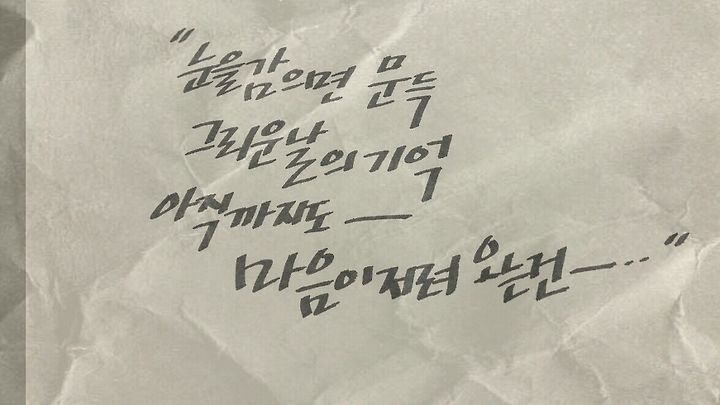 "눈을감으면 문득
그리운날의기억
아직까지도 —
마음이저려 오는건 — .."